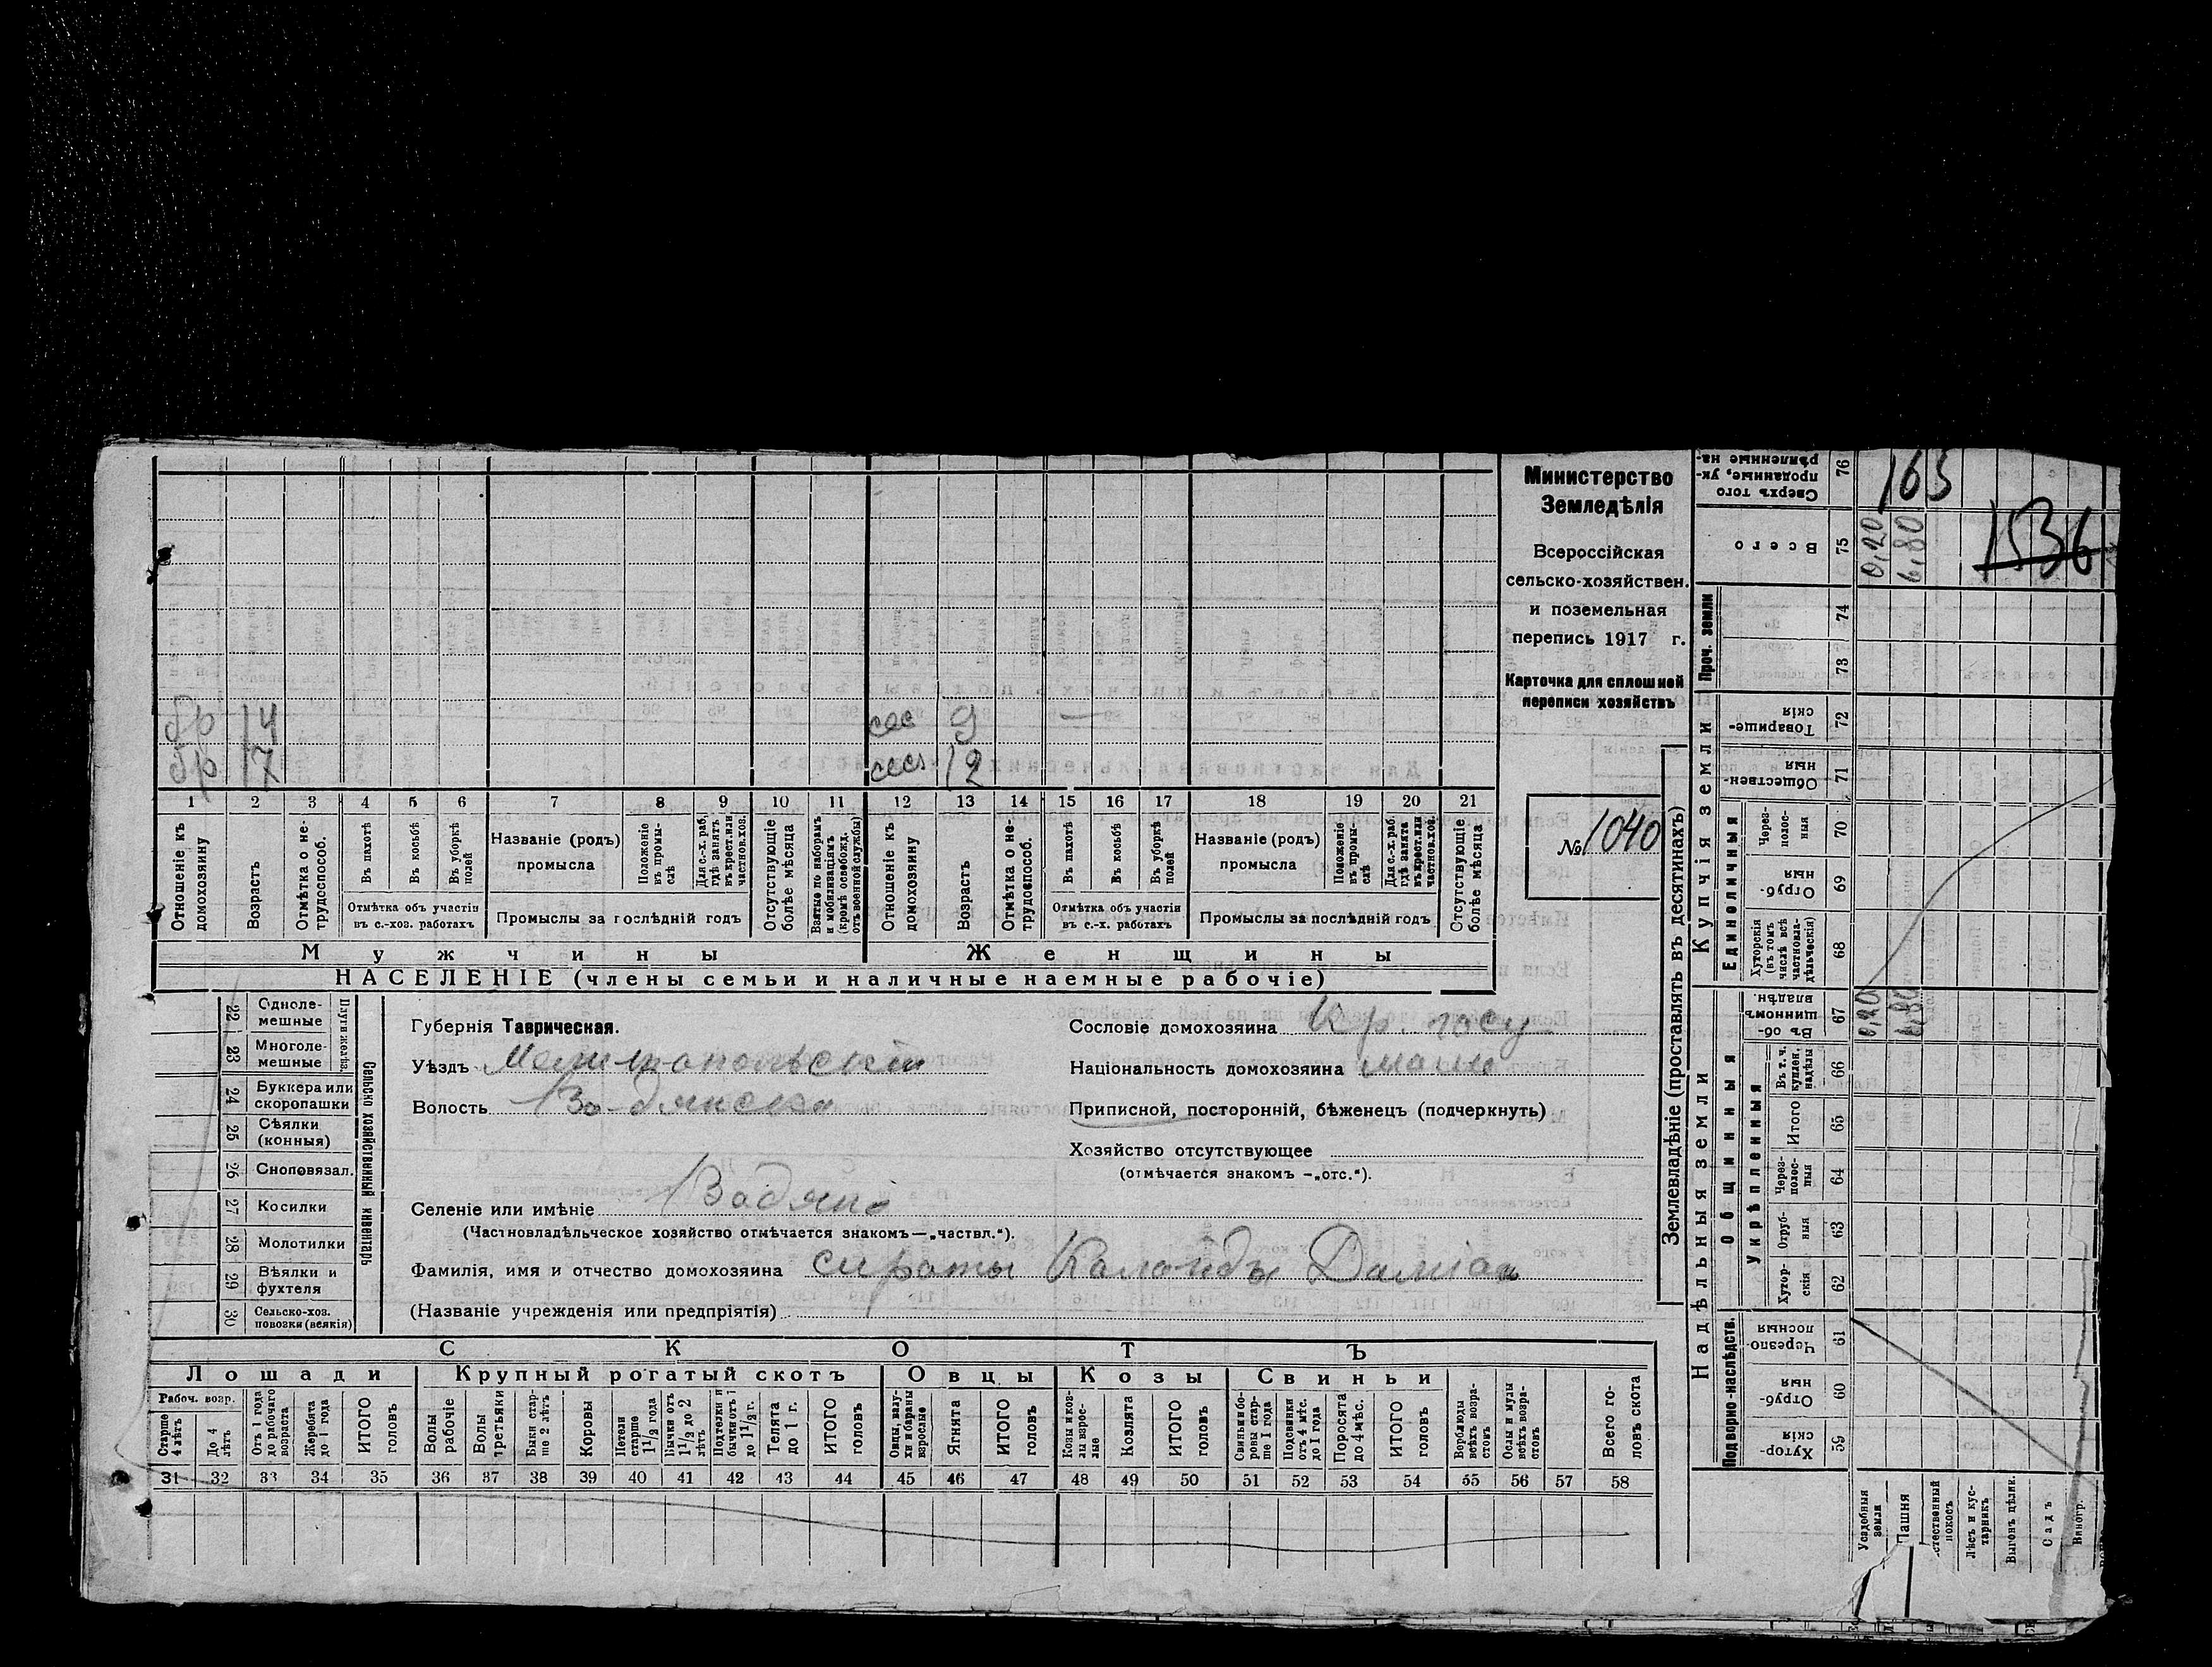 бр 14 сес 9 —
бр 17 сест 12
1 2 3 4 5 6 7 8 9 10 11 12 13 14 15 16 17 18 19 20 21
Отношеніе къ домохозяину
Возрастъ
Отмѣтка о не-трудоспособ.
Въ пахотѣ
Въ косьбѣ
Въ уборкѣ полей
Отмѣтка объ участіи
въ с.-хоз. работахъ
Названіе (родъ)
промысла
Положеніе въ промы-слѣ
Для с.-х. раб. гдѣ занятъ въ крест. или частнов. хоз.
Промыслы за послѣдній годъ
Отсутствующіе болѣе мѣсяца
Взятые по наборамъ и мобилизаціямъ (кромѣ освобожд. отъ военной службы)
Отношеніе къ домохозяину
Возрастъ
Отмѣтка о не-трудоспособ.
Въ пахотѣ
Въ косьбѣ
Въ уборкѣ полей
Отмѣтка объ участіи
въ с.-х. работахъ
Названіе (родъ)
промысла
Положеніе въ промы-слѣ
Для с.-х. раб. гдѣ занята въ крест. или частнов. хоз.
Промыслы за послѣдній годъ
Отсутствующіе болѣе мѣсяца
Мужчины Женщины
НАСЕЛЕНІЕ (члены семьи и наличные наемные рабочіе)
Министерство
Земледѣлія
Всероссійская
сельско-хозяйствен.
и поземельная
перепись 1917 г.
Карточка для сплошной
переписи хозяйствъ
№ 1040
Плуги желѣз.
22 Одноле-мешные
23 Многоле-мешные
24 Буккера или скоропашки
25 Сѣялки (конныя)
26 Сноповязал.
27 Косилки
28 Молотилки
29 Вѣялки и фухтеля
30 Сельско-хоз. повозки (всякія)
Сельско хозяйственный инвентарь
Губернія Таврическая.
Уѣздъ Мелитопольскій
Волость Водянская
Селеніе или имѣніе Водяні
(Частновладѣльческое хозяйство отмѣчается знакомъ—„частвл.“).
Фамилія, имя и отчество домохозяина сироты Даміан
(Названіе учрежденія или предпріятія)
Сословіе домохозяина Кр.
Національность домохозяина мало
Приписной, посторонній, бѣженецъ (подчеркнуть)
Хозяйство отсутствующее
(отмѣчается знакомъ —„отс.“).
СКОТЪ
Лошади Крупный рогатый скотъ Овцы Козы Свиньи
Рабоч. возр.
Старше 4 лѣтъ
До 4 лѣтъ
Отъ 1 года до рабочаго возраста
Жеребята до 1 года
ИТОГО головъ
Волы рабочіе
Волы третьяки
Быки стар-ше 2 лѣтъ
Коровы
Нетели старше 1½ года
Бычки отъ 1½ до 2 лѣтъ
Подтелки и бычки отъ 1 до 1½ г.
Телята до 1 г.
ИТОГО головъ
Овцы, валу-хи и бараны взрослые
Ягнята
ИТОГО головъ
Козы и коз-лы взрос-лые
Козлята
ИТОГО головъ
Свиньи и бо-ровы стар-ше 1 года
Подсвинки отъ 4 мѣс. до 1 года
Поросята до 4 мѣс.
ИТОГО головъ
Верблюды всѣхъ возра-стовъ
Ослы и мулы всѣхъ возра-стовъ
Всего го-ловъ скота
31 32 33 34 35 36 37 38 39 40 41 42 43 44 45 46 47 48 49 50 51 52 53 54 55 56 57 58
Землевладѣніе (проставлять въ десятинахъ)
Надѣльныя земли
Купчія земли
Проч. земли
Подворно-наслѣдств.
Общинныя
Укрѣпленныя
Единоличныя
Хутор-скія 59
Отруб-ныя 60
Черезпо-лосныя 61
Хутор-скія 62
Отруб-ныя 63
Через-полос-ныя 64
Итого 65
Въ т. ч. куплен. надѣлы 66
Въ об-щинномъ владѣн. 67
Хуторскія (въ томъ числѣ всѣ частновла-дѣльческія) 68
Отруб-ныя 69
Через-полос-ныя 70
Обществен-ныя 71
Товарище-скія 72
73
74
Всего 75
Сверхъ того проданные, ук-рѣпленные на- 76
163
1536
0,20
6,80
0,20
6,80
Усадебныя земли
Пашня
Лѣсъ и кус-тарникъ
Выгонъ цѣлик.
Садъ
Виногр.